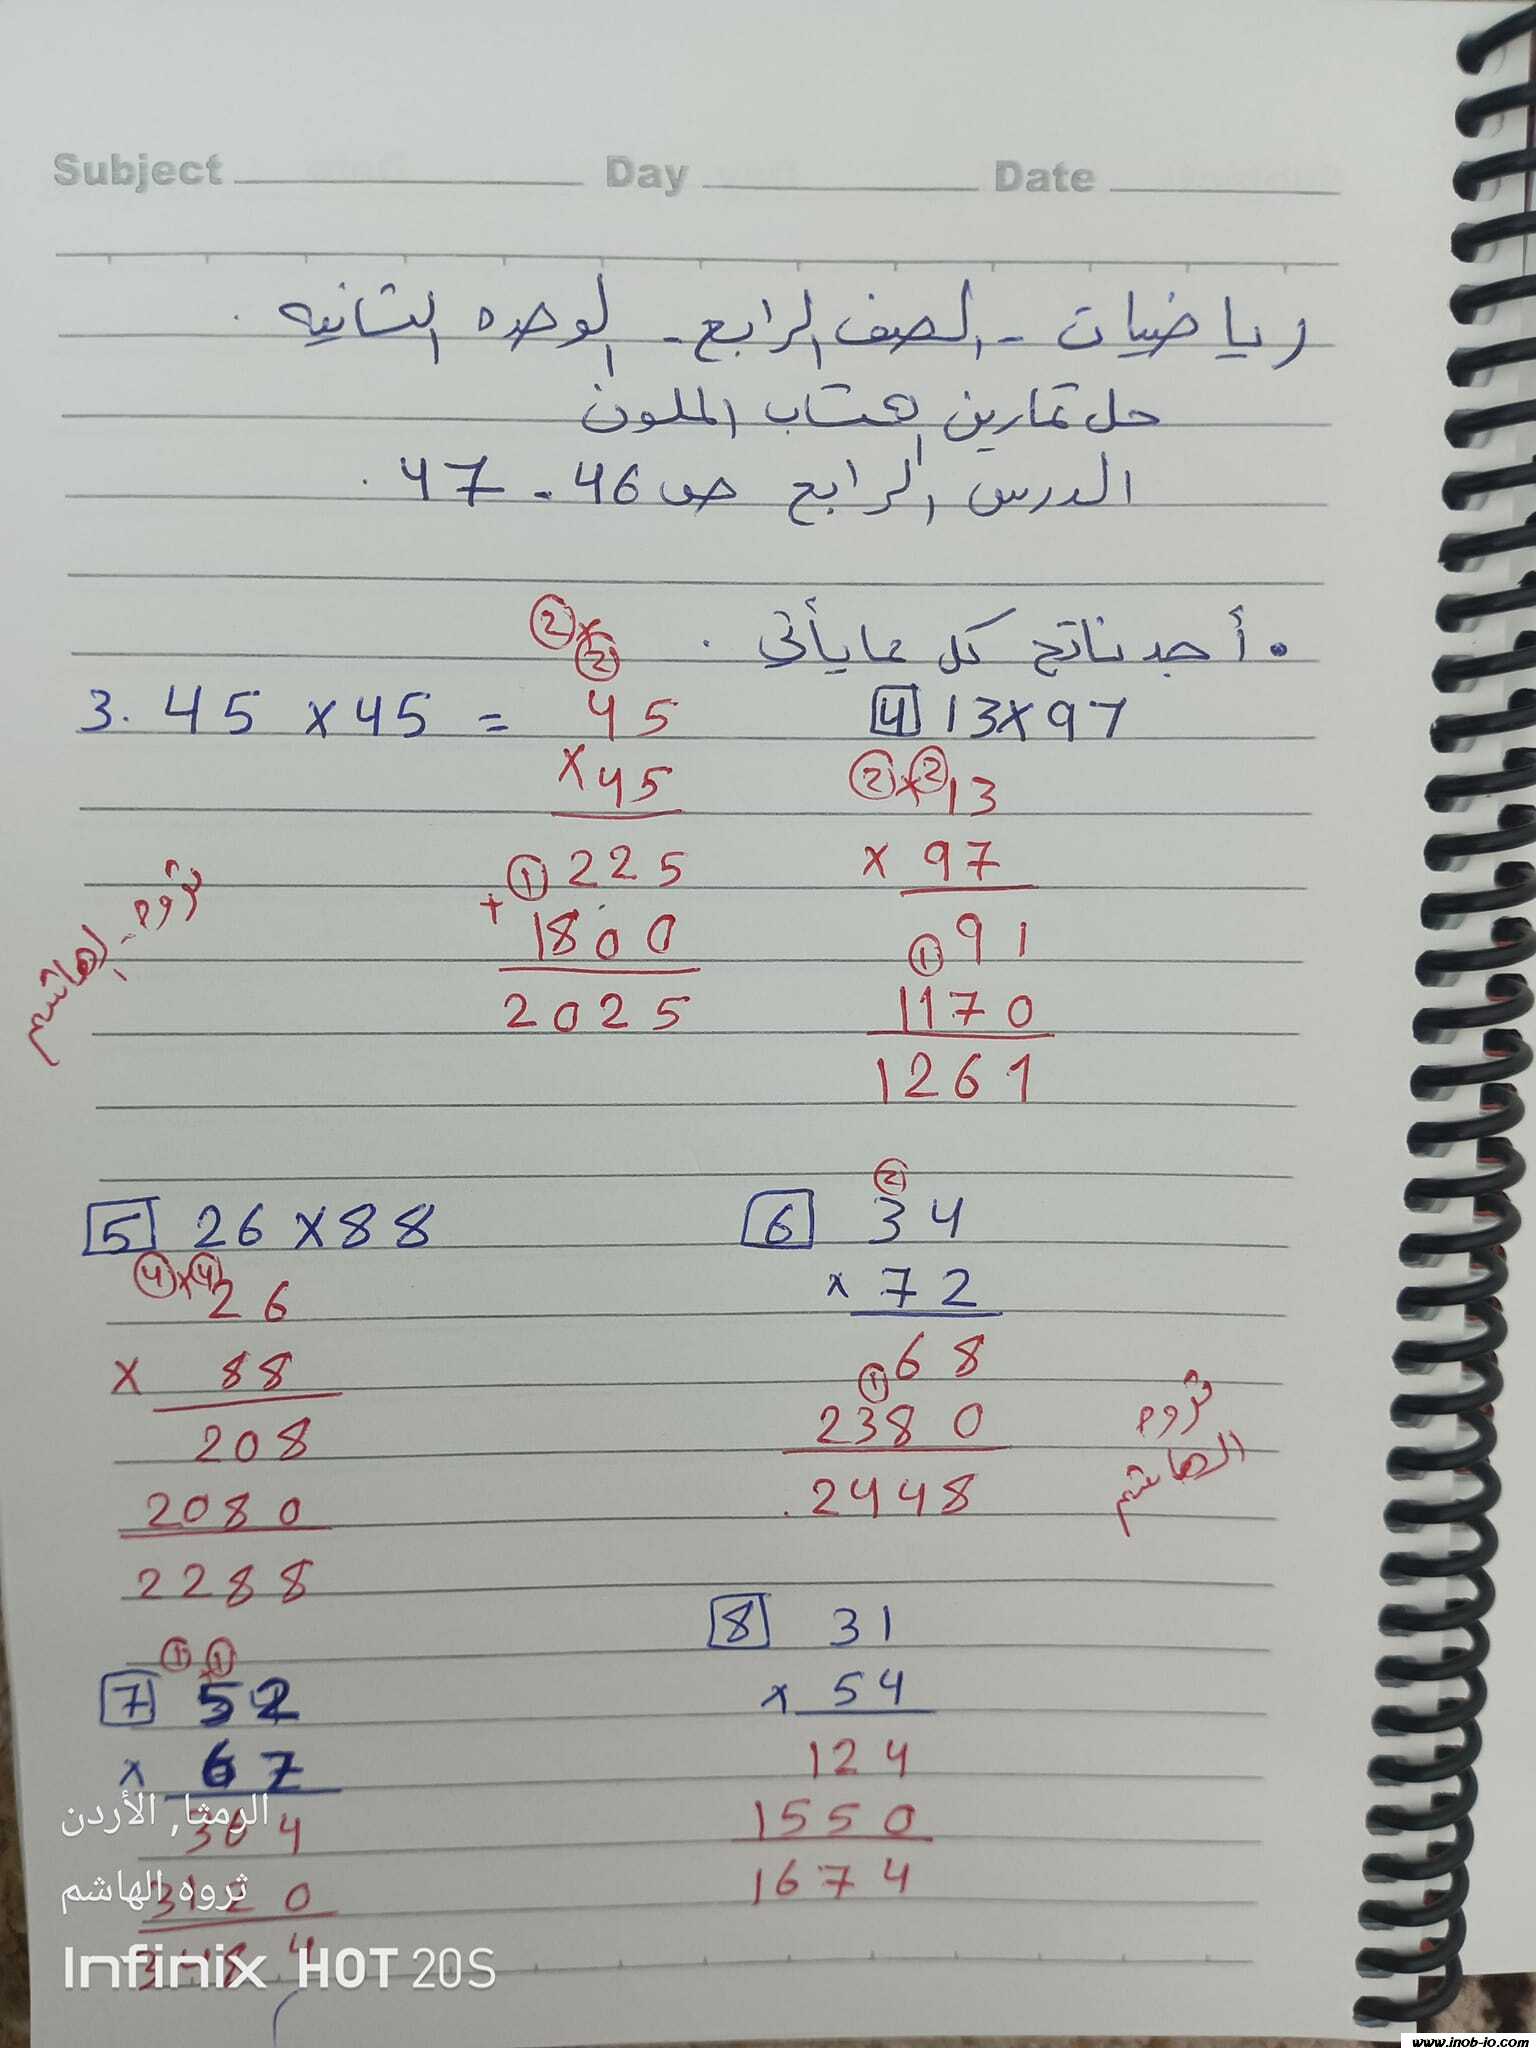 Subject Day Date
رياضيات - الصف الرابع - الوحده الثانيه .
حل تمارين كتاب الملون
الدرس الرابع ص 46 - 47 .
• أجد ناتج كل مما يأتي .
② × ②
3. 45 × 45 = 45
× 45
① 225
+ 1800
2025
4 13 × 97
② × ② 13
× 97
① 91
1170
1261
ثروه الهاشم
5 26 × 88
④ × ④ 26
× 88
208
2080
2288
②
6 34
× 72
① 68
2380
2448
ثروه
الهاشم
① × ①
7 52
× 67
364
3120
3484
8 31
× 54
124
1550
1674
الرمثا, الأردن
ثروه الهاشم
Infinix HOT 20S
www.inob-jo.com